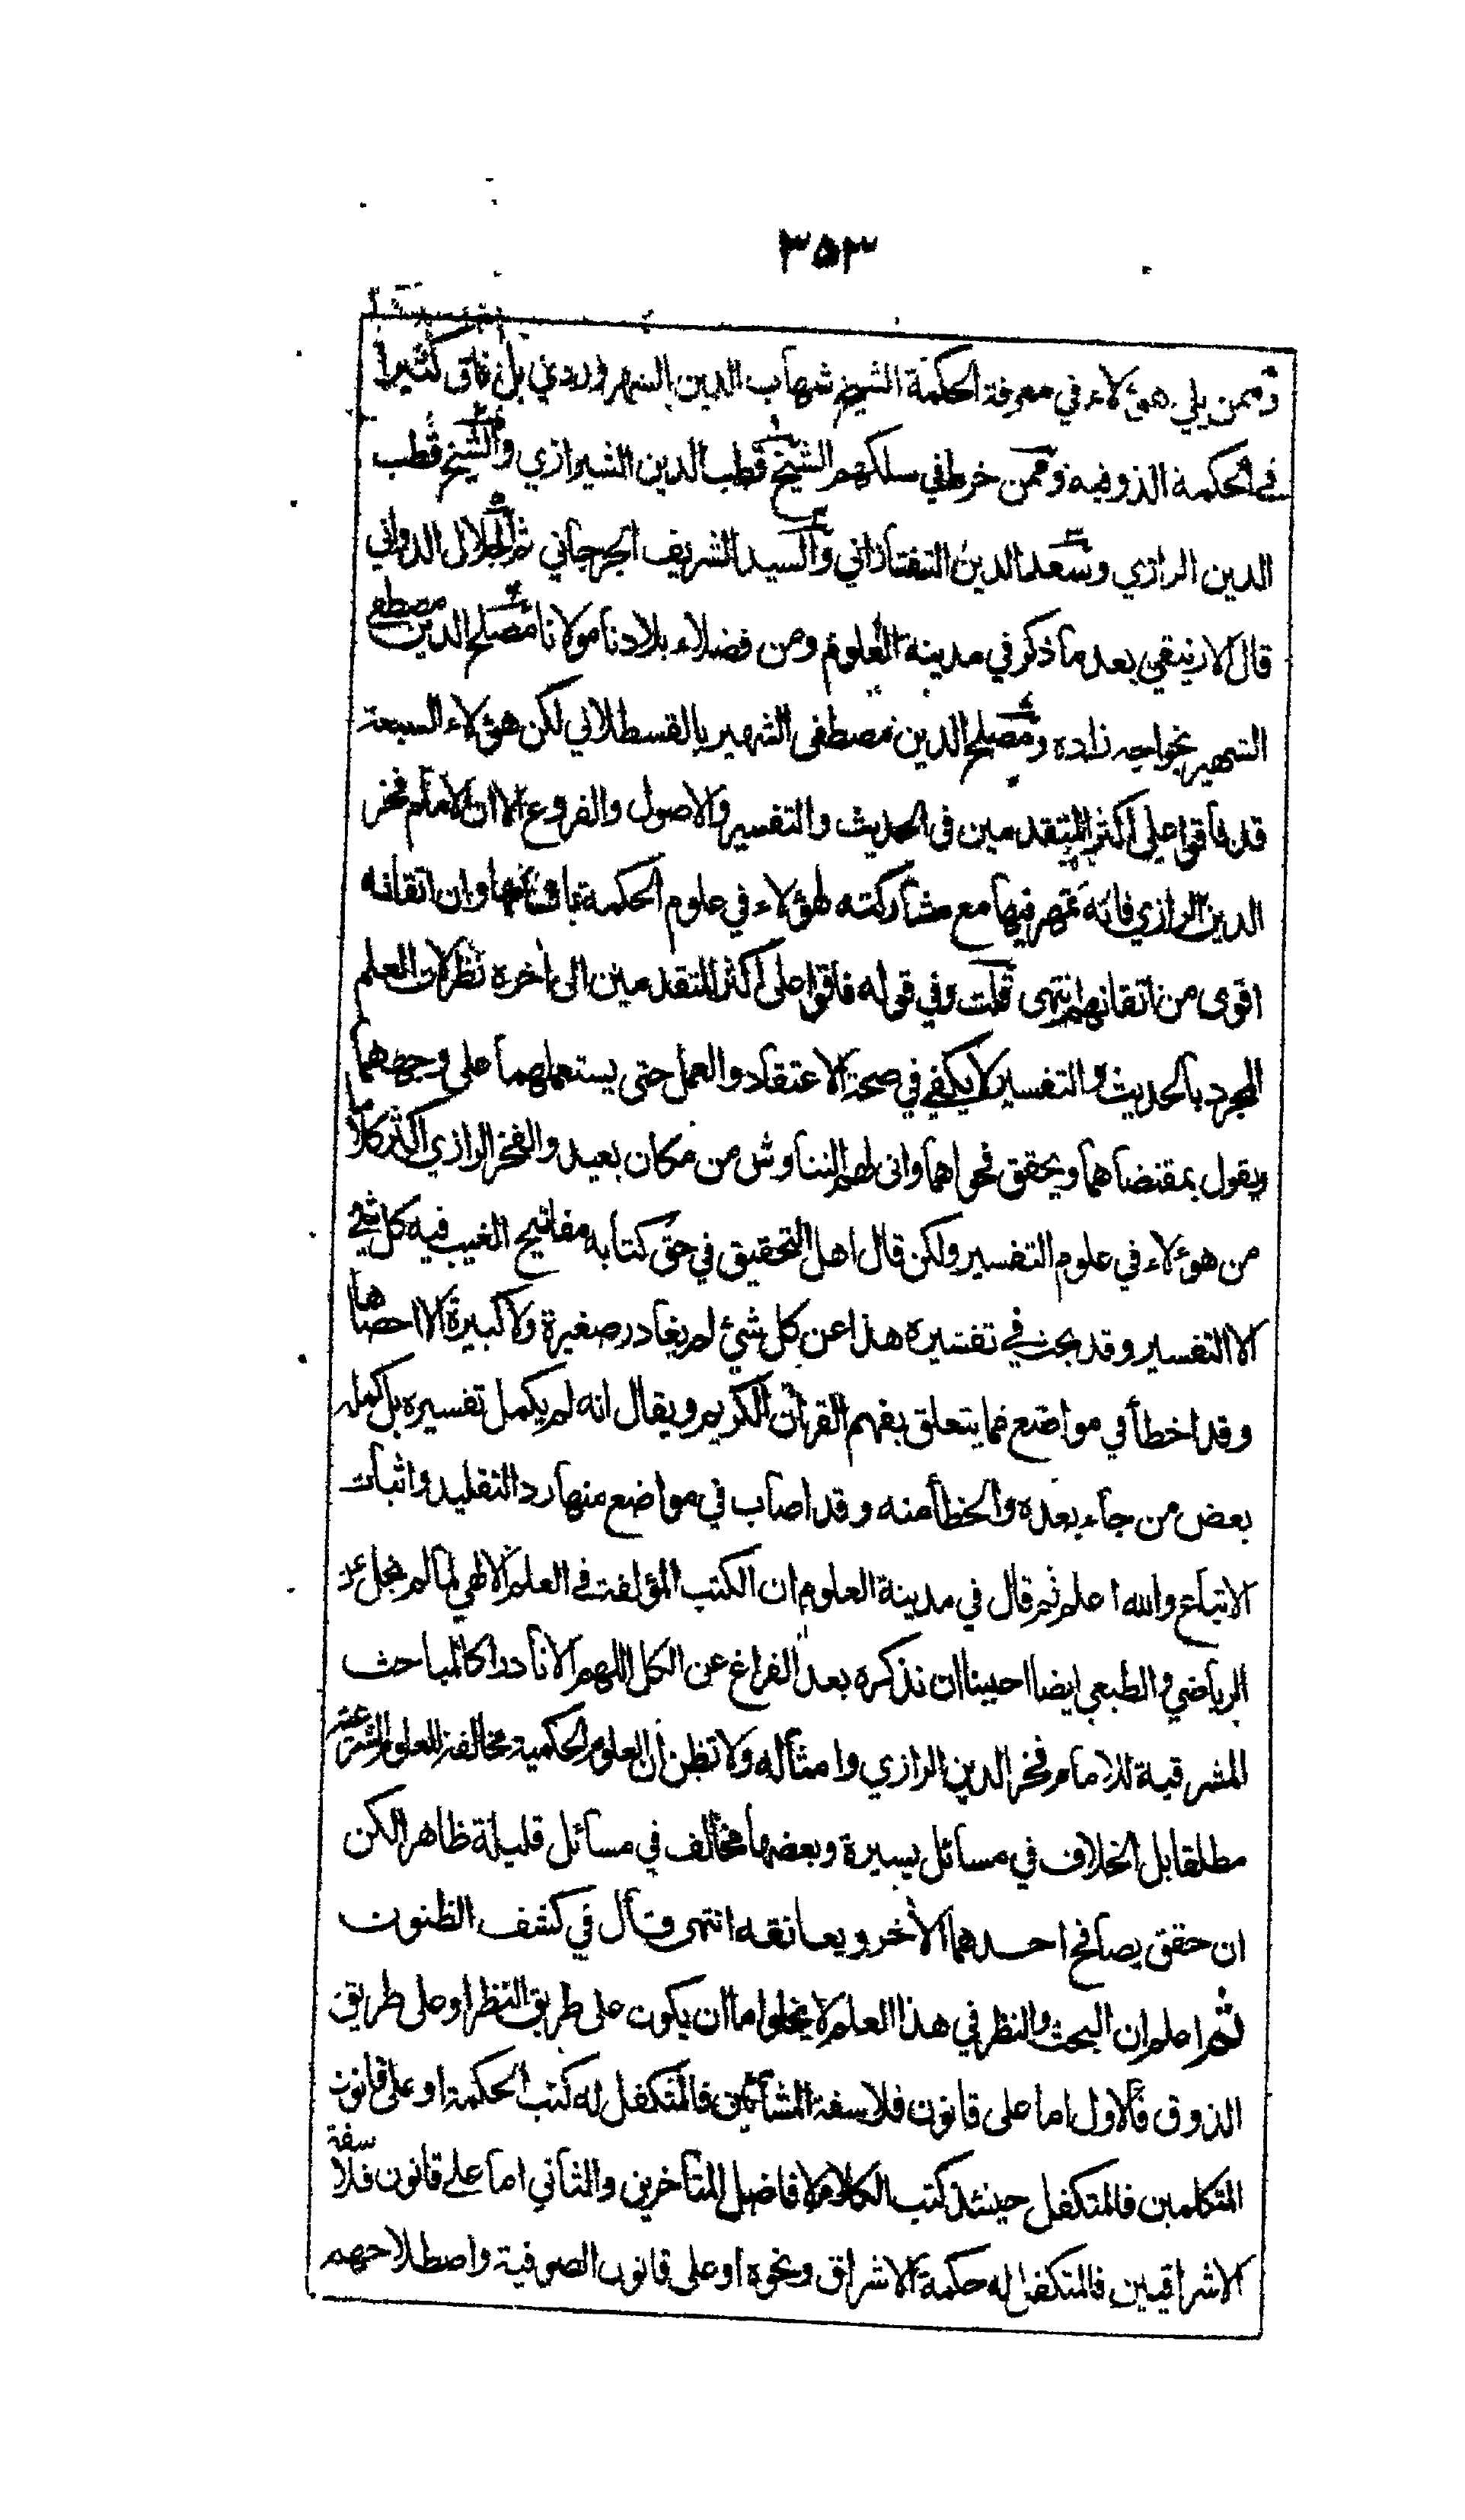 ٣٥٣
وممن يلي هؤلاء في معرفة الحكمة الشيخ شهاب الدين السهروردي بل فاق كثيرا
في الحكمة الذوقية وممن خرط في سلكهم الشيخ قطب الدين الشيرازي والشيخ قطب
الدين الرازي وسعد الدين التفتازاني والسيد الشريف الجرجاني ثم الجلال الدواني
قال الارنيقي بعد ما ذكر في مدينة العلوم ومن فضلاء بلادنا مولانا مصلح الدين مصطفى
الشهير بخواجه زاده ومصلح الدين مصطفى الشهير بالقسطلاني لكن هؤلاء السبعة
قد فاقوا على اكثر المتقدمين في الحديث والتفسير والاصول والفروع الا ان الامام فخر
الدين الرازي فانه تمهر فيها مع مشاركته لهؤلاء في علوم الحكمة باقسامها وان اتقانه
اقوى من اتقانهم انتهى قلت وفي قوله فاقوا على اكثر المتقدمين الى اخره نظر لان العلم
المجرد بالحديث والتفسير لا يكفي في صحة الاعتقاد والعمل حتى يستعملهما على وجههما
ويقول بمقتضاهما ويحقق فحواهما وانى لهم التناوش من مكان بعيد والفخر الرازي اكثر كلاما
من هؤلاء في علوم التفسير ولكن قال اهل التحقيق في حق كتابه مفاتيح الغيب فيه كل شئ
الا التفسير وقد بحث في تفسيره هذا عن كل شئ لم يغادر صغيرة ولا كبيرة الا احصاها
وقد اخطأ في مواضع مما يتعلق بفهم القران الكريم ويقال انه لم يكمل تفسيره بل كمله
بعض من جاء بعده والخطأ منه وقد اصاب في مواضع منها رد التقليد واثبات
الاتباع والله اعلم ثم قال في مدينة العلوم ان الكتب المؤلفة في العلم الالهي لما لم يخل عن
الرياضي والطبعي ايضا احببنا ان نذكره بعد الفراغ عن الكل اللهم الا نادرا كالمباحث
المشرقية للامام فخر الدين الرازي وامثاله ولا تظن ان العلوم الحكمية مخالفة للعلوم الشرعية
مطلقا بل الخلاف في مسائل يسيرة وبعضها مخالف في مسائل قليلة ظاهرا لكن
ان حقق يصافح احدهما الاخر ويعانقه انتهى وقال في كشف الظنون
ثم اعلم ان البحث والنظر في هذا العلم لا يخلو اما ان يكون على طريق النظر او على طريق
الذوق فالاول اما على قانون فلاسفة المشائين فالمتكفل له كتب الحكمة او على قانون
المتكلمين فالمتكفل حينئذ كتب الكلام لافاضل المتأخرين والثاني اما على قانون فلاسفة
الاشراقيين فالمتكفل له حكمة الاشراق ونحوه او على قانون الصوفية واصطلاحهم